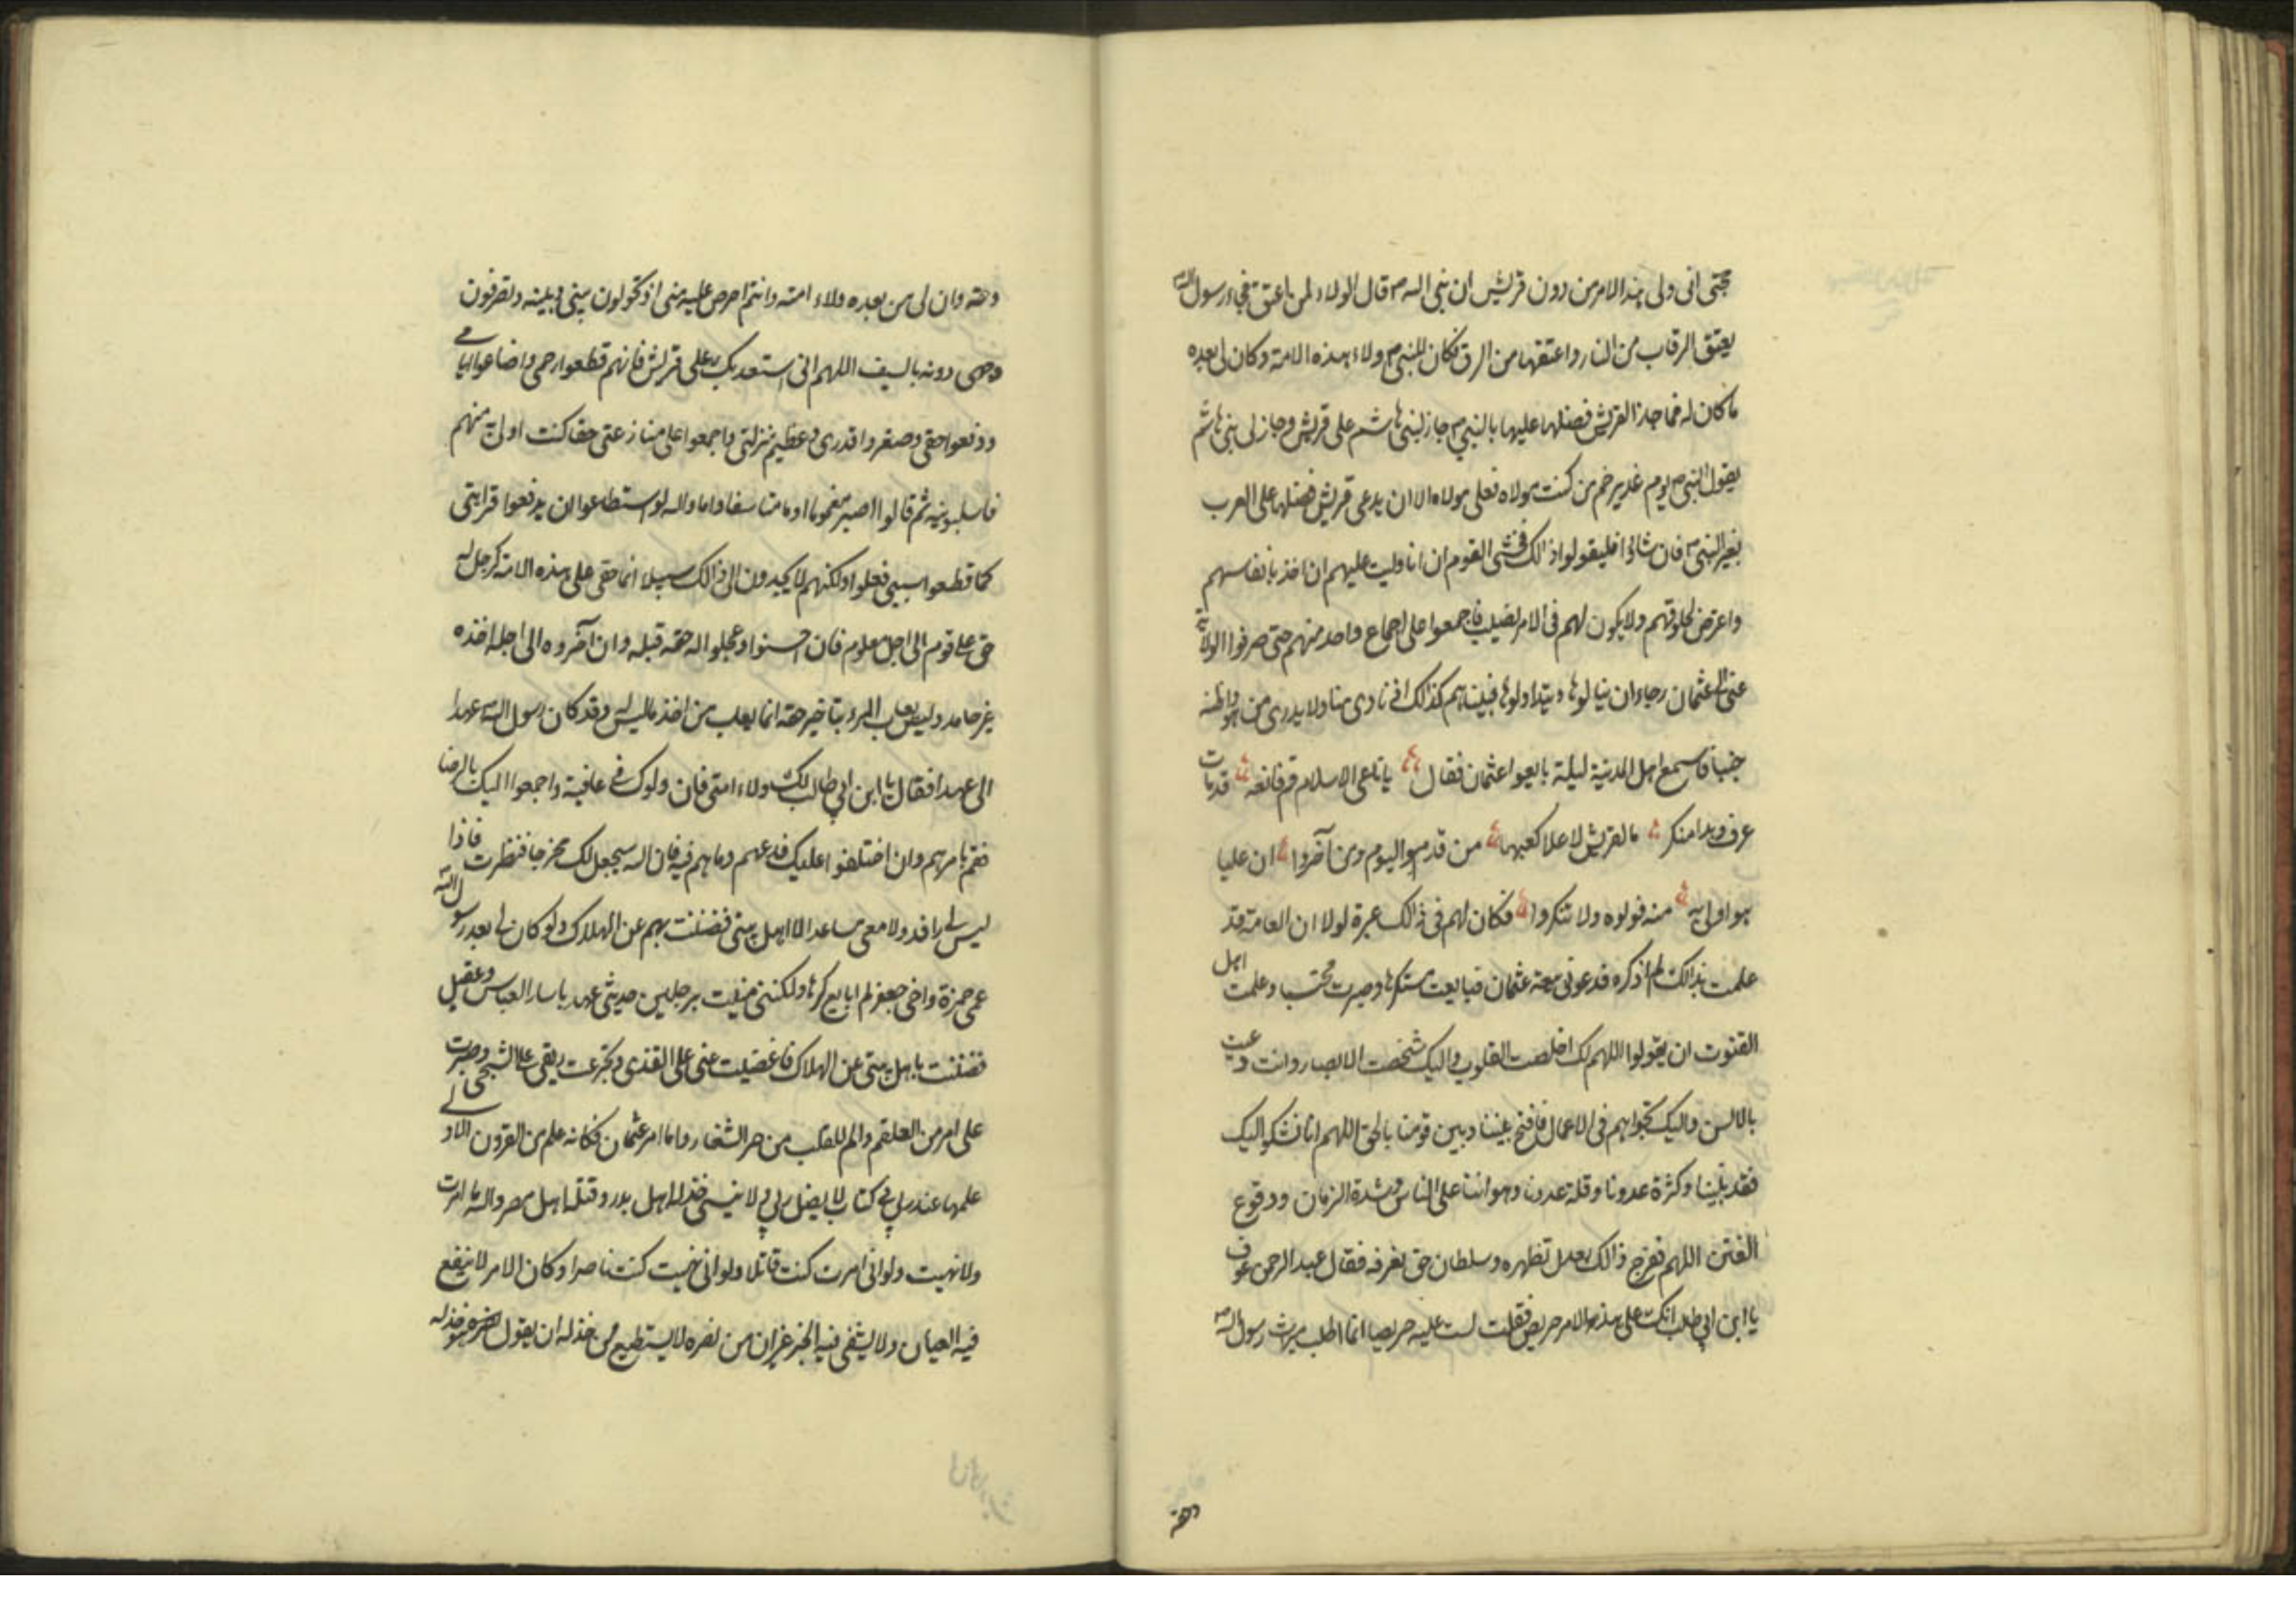 حجتى انى ولى هذا الامر من دون قريش ان نبى الله ص قال الولاء لمن اعتق فجاء رسول الله
يعتق الرقاب من النار واعتقها من الرق فكان للنبى ص ولاء هذه الامة وكان لى بعده
ما كان له فما جاز لقريش فضلها عليها بالنبى ص جاز لبنى هاشم على قريش وجاز لى بنى هاشم
يقول النبى ص يوم غدير خم من كنت مولاه فعلى مولاه الا ان يدعى قريش فضلها على العرب
بغير النبى ص فان شاؤا فليقولوا ذالك فخشى القوم ان انا وليت عليهم ان اخذ بانفاسهم
واعترض فى حلوقهم ولا يكون لهم فى الامر نصيب فاجمعوا على اجماع واحد منهم حتى صرفوا الولاية
عنى الى عثمان رجاء ان ينالوها ويتداولوها فبينا هم كذالك اذ نادى مناد لا يدرى من هو واظنه
جنيا فاسمع اهل المدينة ليلة بايعوا عثمان فقال يا ناعى الاسلام قم فانعه قد مات
عرف وبدا منكر ما لقريش لا علا كعبها من قدموا اليوم ومن آخروا ان عليا
هو اولى به منه فولوه ولا تنكروا فكان لهم فى ذالك عبرة لولا ان العامة قد
علمت بذالك لم اذكره فدعونى بيعة عثمان فبايعت مستكرها وصبرت محتسبا وعلمت اهل
القنوت ان يقولوا اللهم لك اخلصت القلوب واليك شخصت الابصار وانت دعيت
بالالسن واليك نجواهم فى الاعمال فافتح بيننا وبين قومنا بالحق اللهم انا نشكو اليك
فقد نبينا وكثرة عدونا وقلة عددنا وهواننا على الناس وشدة الزمان ووقوع
الفتن اللهم ففرج ذالك بعدل تظهره وسلطان حق تعرفه فقال عبد الرحمن عوف
يا ابن ابى طالب انك على هذه الامر حريص فقلت لست عليه حريصا انما اطلب ميراث رسول الله ص
وحقه
وحقه وان لى من بعده ولاء امته وانتم احرص عليه منى اذ تحولون بينى وبينه وتصرفون
وجهى دونه بالسيف اللهم انى استعديك على قريش فانهم قطعوا رحمى واضاعوا ايامى
ودفعوا حقى وصغروا قدرى وعظيم منزلتى واجمعوا على منازعتى حقا كنت اولى به منهم
فاسلبونيه ثم قالوا اصبر مغموما او مت متاسفا واما والله لو استطاعوا ان يدفعوا قرابتى
كما قطعوا سببى فعلوا ولكنهم لا يجدون الى ذالك سبيلا انما حقى على هذه الامة كرجل له
حق على قوم الى اجل معلوم فان احسنوا وعجلوا له حقه قبله وان آخروه الى اجله اخذه
غير حامد وليس يعاب المرء بتاخير حقه انما يعاب من اخذ ما ليس له وقد كان رسول الله ص عهد
الى عهدا فقال يا ابن ابى طالب لك ولاء امتى فان ولوك فى عافية واجمعوا اليك بالرضا
فقم بامرهم وان اختلفوا عليك فدعهم وما هم فيه فان الله سيجعل لك مخرجا فنظرت فاذا
ليس لى رافد ولا معى مساعد الا اهل بيتى فضننت بهم عن الهلاك ولو كان لى بعد رسول الله
عمى حمزة واخى جعفر لم ابايع كرها ولكننى منيت برجلين حديثى عهد بالاسلام العباس وعقيل
فضننت باهل بيتى عن الهلاك فاغضيت عينى على القذى وتجرعت ريقى على الشجى وصبرت
على امر من العلقم والم للقلب من حر الشفار واما امر عثمان فكانه علم من القرون الاولى
علمها عند ربى فى كتاب لا يضل ربى ولا ينسى خذله اهل بدر وقتله اهل مصر والله ما امرت
ولا نهيت ولو انى امرت كنت قاتلا ولو انى نهيت كنت ناصرا وكان الامر لا ينفع
فيه العيان ولا يشفى فيه الخبر غير ان من نصره لا يستطيع من خذله ان يقول نصره هو خذله